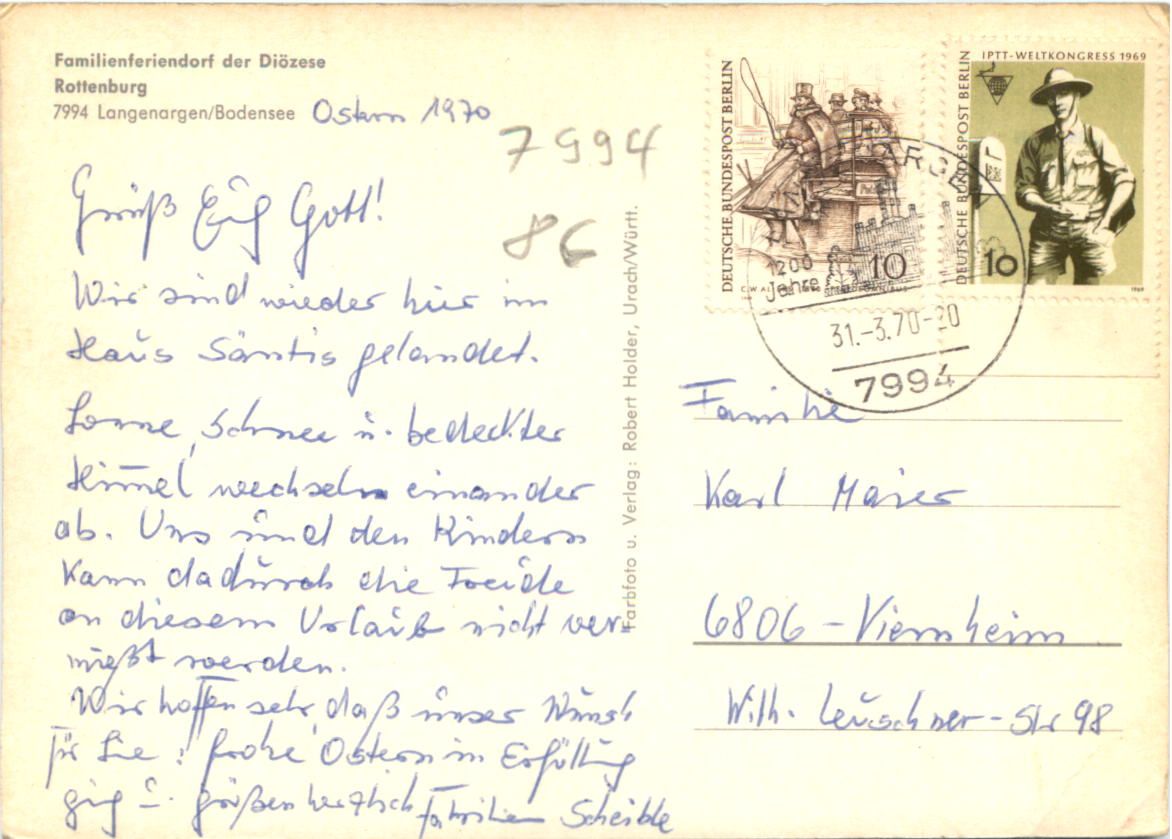 Familienferiendorf der Diözese
Rottenburg
7994 Langenargen/Bodensee Ostern 1970
7994
86
Grüß Euch Gott!
Wir sind wieder hier im
Haus Säntis gelandet.
Sonne, Schnee u. bedeckter
Himmel wechseln einander
ab. Uns und den Kindern
kann dadurch die Freude
an diesem Urlaub nicht ver-
mießt werden.
Wir hoffen sehr, daß unser Wunsch
für Sie: frohe Ostern in Erfüllung
ging u. grüßen herzlich Familien Scheible
Farbfoto u. Verlag: Robert Holder, Urach/Württ.
DEUTSCHE BUNDESPOST BERLIN
10
IPTT-WELTKONGRESS 1969
DEUTSCHE BUNDESPOST BERLIN
10
1969
1200
Jahre
31.-3.70-20
7994
Familie
Karl Maier
6806 - Viernheim
Wilh. Leuschner-Str 98